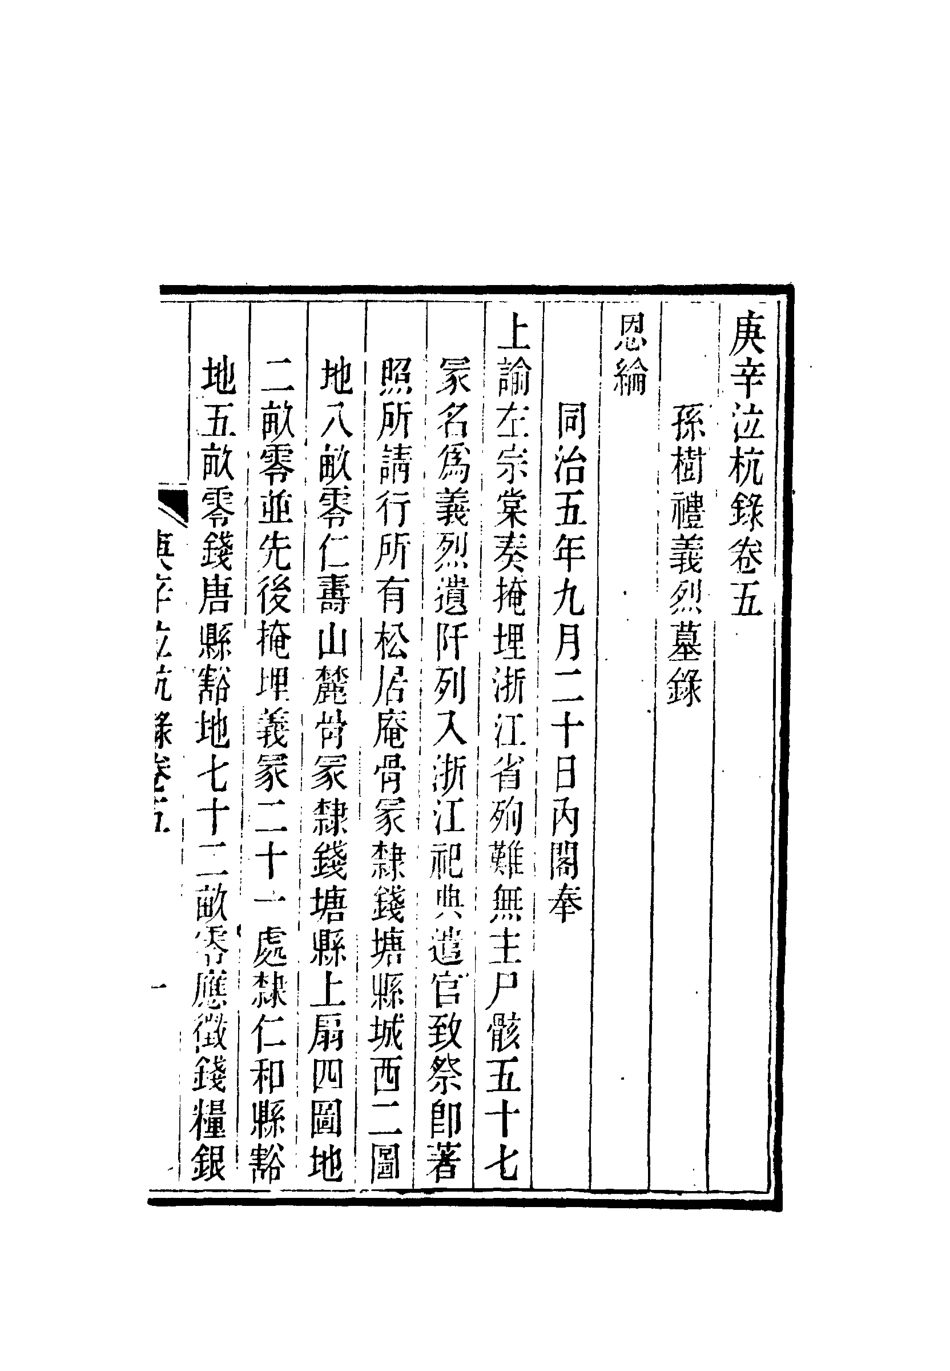 庚辛泣杭錄卷五
孫樹禮義烈墓錄
恩綸
同治五年九月二十日內閣奉
上諭左宗棠奏掩埋浙江省殉難無主尸骸五十七
冢名爲義烈遺阡列入浙江祀典遣官致祭卽著
照所請行所有松居庵骨冢隸錢塘縣城西二圖
地八畝零仁壽山麓骨冢隸錢塘縣上扇四圖地
二畝零並先後掩埋義冢二十一處隸仁和縣豁
地五畝零錢唐縣豁地七十二畝零應徵錢糧銀
庚辛泣杭錄卷五
一